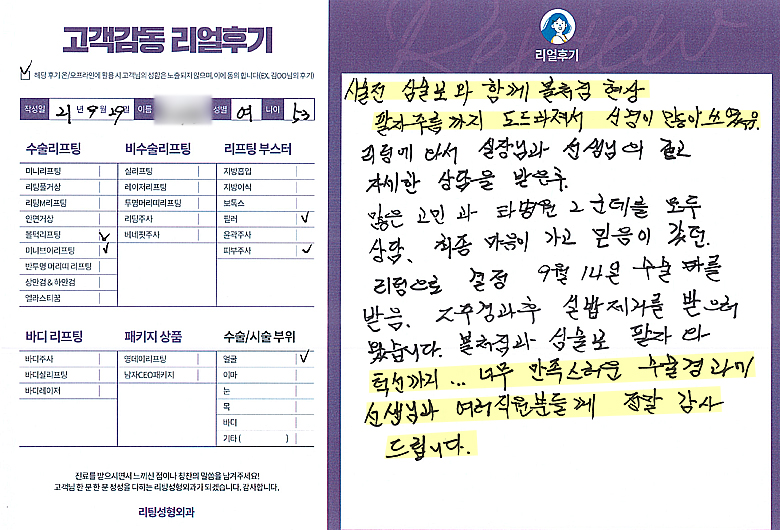 고객감동 리얼후기
해당 후기 온/오프라인에 활용 시 고객님의 성함은 노출되지 않으며, 이에 동의 합니다(EX. 김OO님의 후기)
작성일 21년 9월 29일 이름 성별 여 나이 53
수술리프팅
미니리프팅
리팅풀거상
리팅M리프팅
안면거상
볼턱리프팅
미니브이리프팅
반투명 머리띠 리프팅
상안검 & 하안검
엘라스티꿈
비수술리프팅
실리프팅
레이저리프팅
투명머리띠리프팅
리팅주사
베네핏주사
리프팅 부스터
지방흡입
지방이식
보톡스
필러
윤곽주사
피부주사
바디 리프팅
바디주사
바디실리프팅
바디레이저
패키지 상품
영데이리프팅
남자CEO패키지
수술/시술 부위
얼굴
이마
눈
목
바디
기타 ( )
진료를 받으시면서 느끼신 점이나 칭찬의 말씀을 남겨주세요!
고객님 한 분 한 분 정성을 다하는 리팅성형외과가 되겠습니다. 감사합니다.
리팅성형외과
Review
리얼후기
시술전 심술보와 함께 볼처짐 현상
팔자주름까지 도드라져서 신경이 많이 쓰였어요.
리팅에 와서 실장님과 선생님의 
자세한 상담을 받은후.
많은 고민과 타병원 2군데를 모두
상담. 최종 마음이 가고 믿음이 갔던.
리팅으로 결정 9월 14일 수술 
받음. 2주경과후 실밥제거를 받으러
왔습니다. 볼처짐과 심술보 팔자 와
턱선까지... 너무 만족스러운 수술경과에
선생님과 여러직원분들께 정말 감사
드립니다.